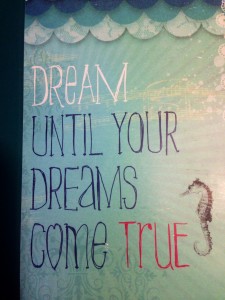 DREAM
UNTIL YOUR
DREAMS
COME TRUE